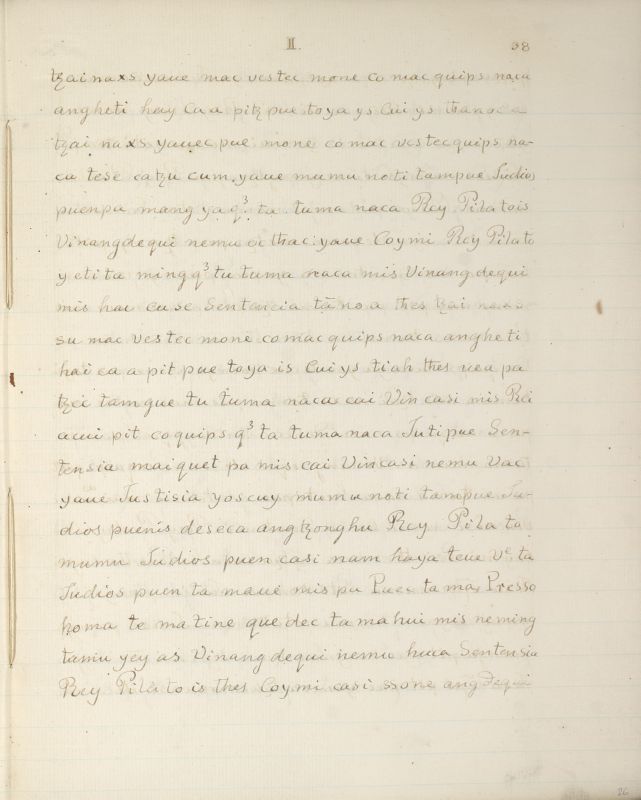 II. 38
tzai naxs yaue mac vestec mone co mac quips naca
angheti hay ca a pitz pue toya ys Cui ys
tzai naxs yauec pue mone co mac vestecquips na-
ca tese catzu cum yaue mumu noti tampue Judios
puenpa mang ya q³ ta tuma naca Rey Pilatois
Vinangdequi nemu oc thac: yaue Coymi Rey Pilato
y eti ta ming q³ tu tuma naca mis Vinang dequi
mis hau cu se Sentancia tāno a thes tzai
su mac vestec mone comacquips naca angheti
hai ca a pit pue toya is Cuiys tiah thes uca pa
tzei tamgue tu tuma naca cai Vin casi mis Rei
acui pit coquips q³ ta tuma naca Jutipue Sen-
tensia maiquet pa mis cai Vincasi nemu vac
yaue Justisia yoscuy mumu noti tampue Ju-
dios puenis deseca angtzonghu Rey Pilato
mumu Judios puen casi nam haya teue Vᵉ ta
Judios puen ta maue mis pa Puec tamas Presso
homa te matine que dec tamahui mis neming
tamu yey as Vinangdequi nemu huua Sentensia
Rey Pilato is thes Coymi casi ssone angdequi
26